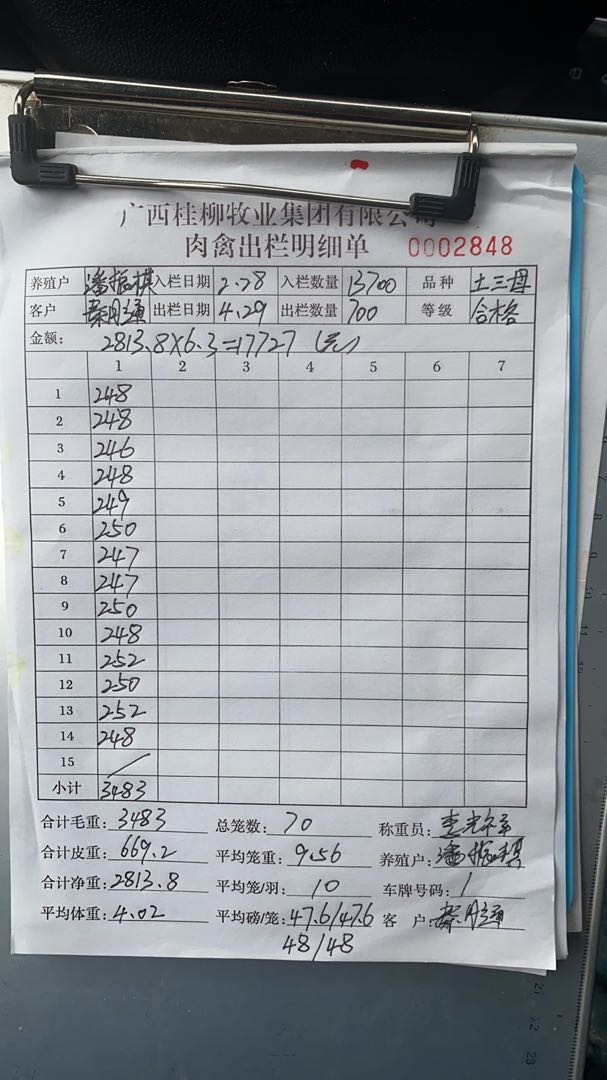 广西桂柳牧业集团有限公司
肉禽出栏明细单 0002848
养殖户 潘振棋 入栏日期 2.28 入栏数量 13700 品种 土三母
客户 秦月通 出栏日期 4.29 出栏数量 700 等级 合格
金额: 2813.8×6.3=17727 (元)
1 2 3 4 5 6 7
1 248
2 248
3 246
4 248
5 249
6 250
7 247
8 247
9 250
10 248
11 252
12 250
13 252
14 248
15 /
小计 3483
合计毛重: 3483 总笼数: 70 称重员:
合计皮重: 669.2 平均笼重: 9.56 养殖户: 潘振棋
合计净重: 2813.8 平均笼/羽: 10 车牌号码: 1
平均体重: 4.02 平均磅/笼: 47.6/47.6 客 户: 秦月通
48/48